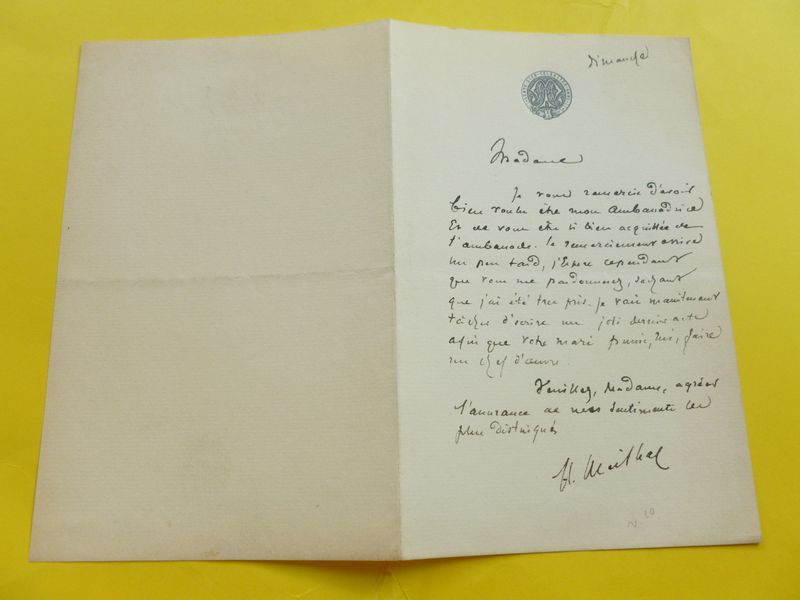 Dimanche
Madame
Je vous remercie d'avoir
bien voulu être mon ambassadrice
Et de vous être si bien acquittée de
l'ambassade. Le remerciement arrive
un peu tard, j'espère cependant
que vous me pardonnerez, sachant
que j'ai été très pris. Je vais maintenant
tâcher d'écrire un joli dernier acte
afin que votre mari puisse, lui, faire
un chef d'œuvre.
Veuillez, Madame, agréer
l'assurance de mes sentiments les
plus distingués
H. Meilhac